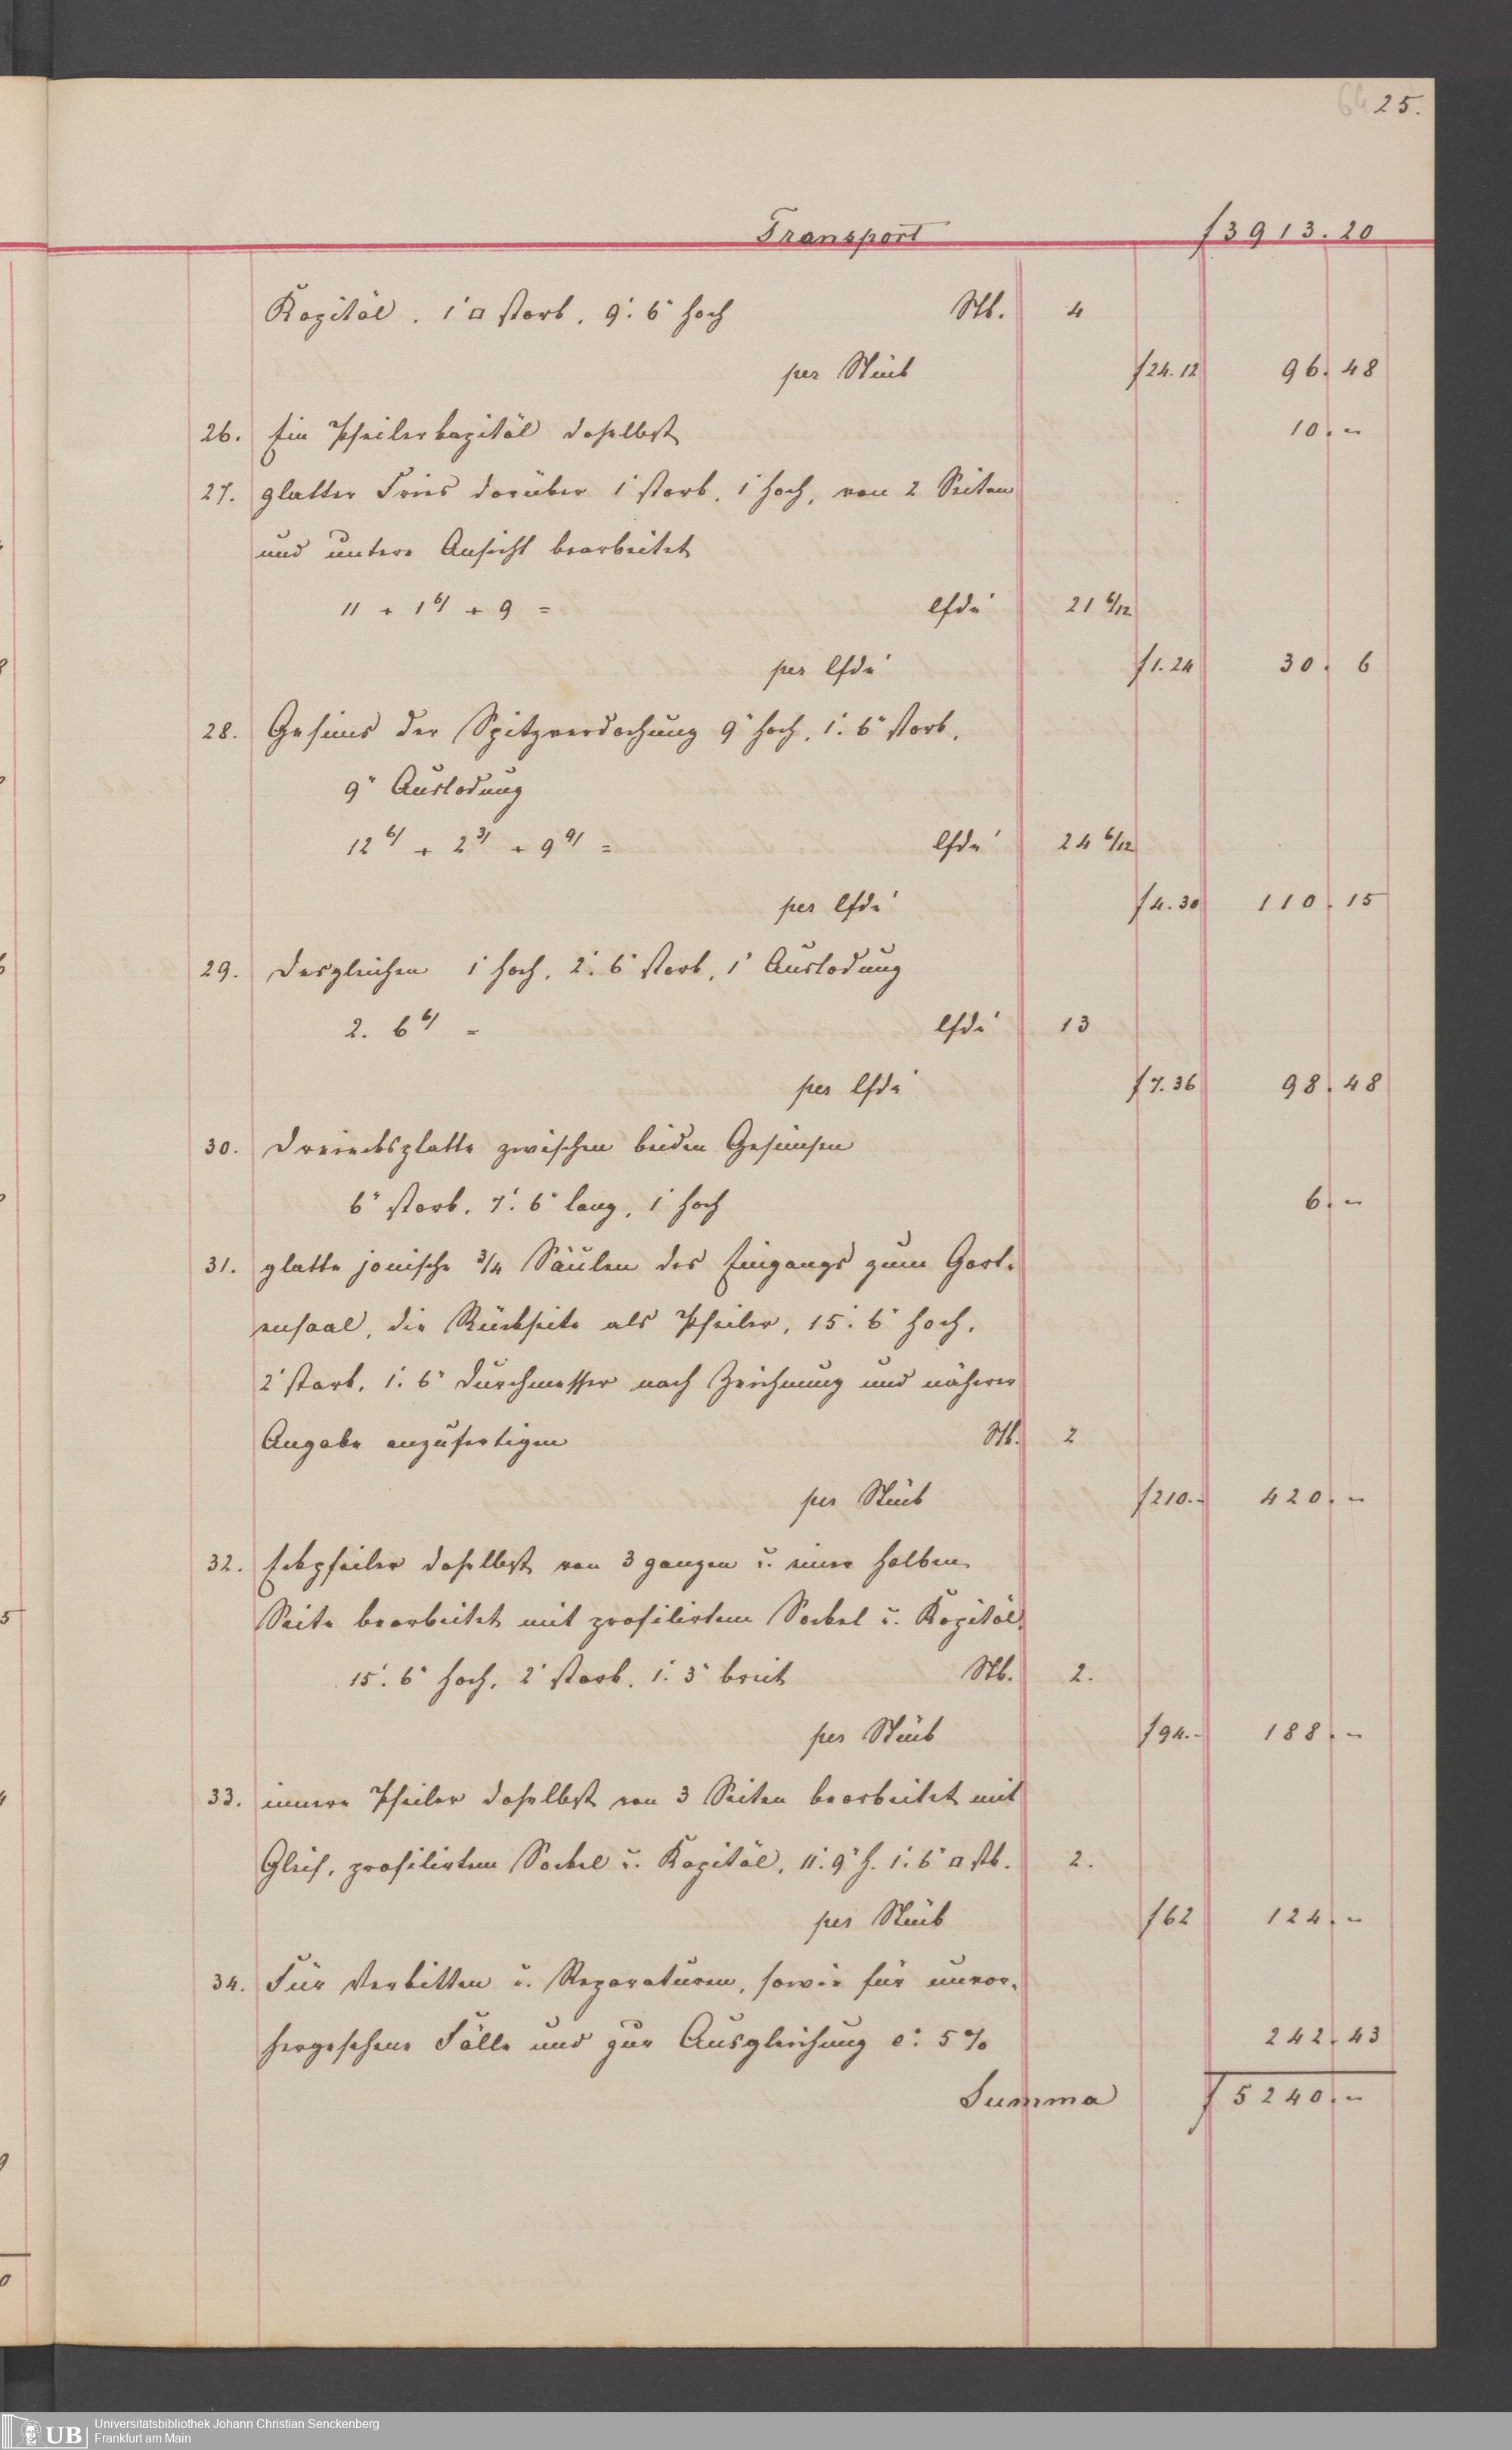 64 25.
Transport f 3913. 20
Kapitäl, 1' □ stark, 9'. 6" hoch Stk. 4
per Stück f 24. 12 96. 48
26. Ein Pfeilerkapitäl daselbst 10. –
27. glatter Fries darüber 1' stark, 1' hoch, von 2 Seiten
und untere Ansicht bearbeitet
11 + 1 6/ + 9 = lfde' 21 6/12
per lfde' f 1. 24 30. 6
28. Gesims der Spitzverdachung 9" hoch, 1'. 6" stark,
9" Ausladung
12 6/ + 2 3/ + 9 9/ = lfde' 24 6/12
per lfde' f 4. 30 110. 15
29. Desgleichen 1' hoch, 2'. 6" stark, 1' Ausladung
2. 6 6/ = lfde' 13
per lfde' f 7. 36 98. 48
30. Dreiecksplatte zwischen beiden Gesimsen
6" stark, 7'. 6" lang, 1' hoch 6. –
31. glatte jonische 3/4 Säulen des Eingangs zum Gart-
ensaal, die Rückseite als Pfeiler, 15'. 6" hoch,
2' stark, 1'. 6" Durchmesser nach Zeichnung und näherer
Angabe anzufertigen Stk. 2
per Stück f 210. – 420. –
32. Eckpfeiler daselbst von 3 ganzen u. einer halben
Seite bearbeitet mit profilirtem Sockel u. Kapitäl,
15'. 6" hoch, 2' stark, 1'. 3" breit Stk. 2.
per Stück f 94. – 188. –
33. innere Pfeiler daselbst von 3 Seiten bearbeitet mit
Gleif, profilirtem Sockel u. Kapitäl, 11'. 9" h. 1'. 6" □ stk. 2.
per Stück f 62 124. –
34. Für Verkitten u. Reparaturen, sowie für unvor-
hergesehene Fälle und zur Ausgleichung c: 5 % 242. 43
Summa f 5240. –
Universitätsbibliothek Johann Christian Senckenberg
Frankfurt am Main
UB